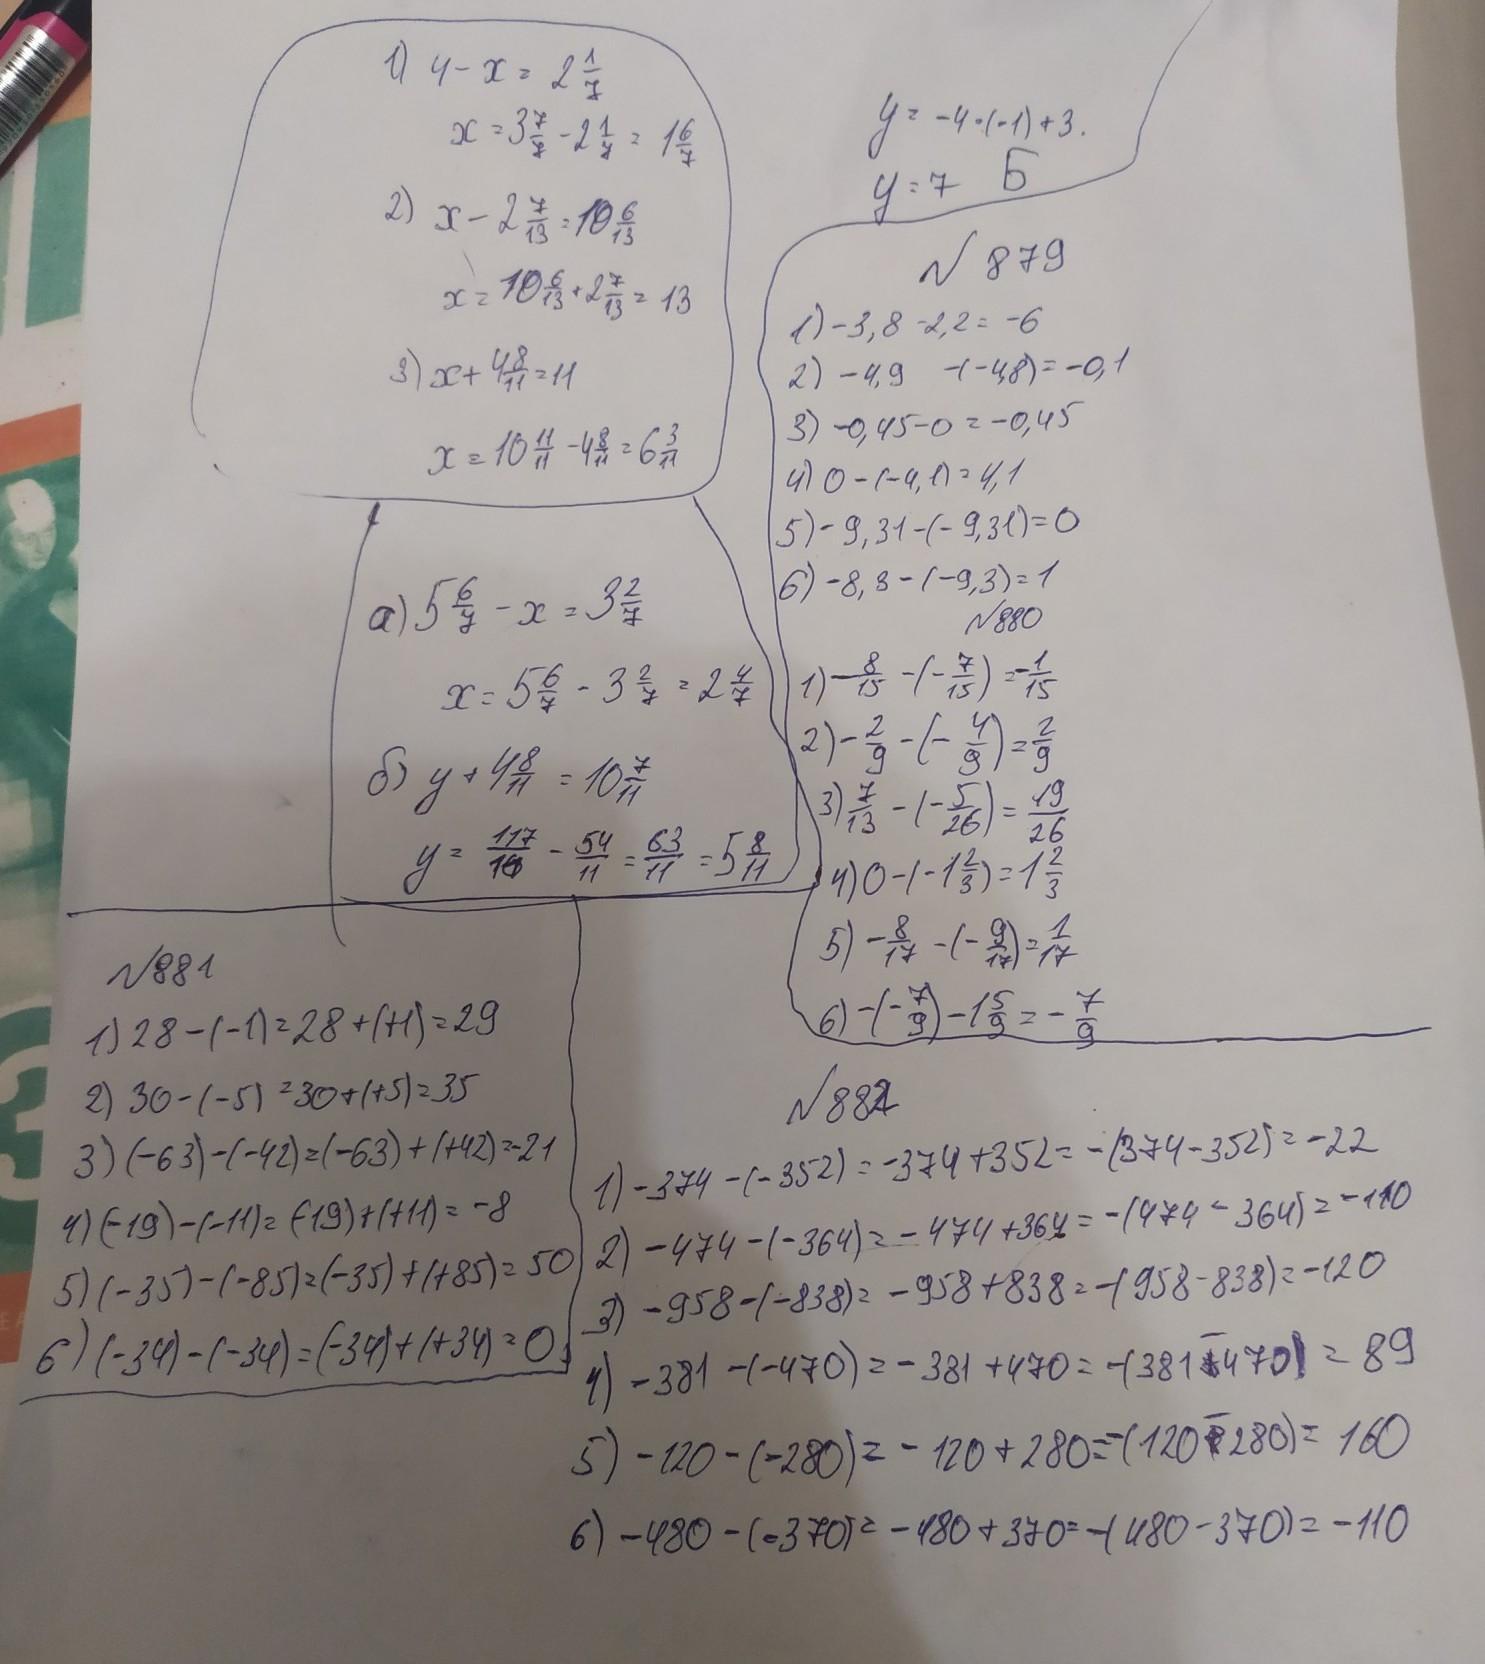 1) 4 - x = 2 1/7
x = 3 7/7 - 2 1/7 = 1 6/7
2) x - 2 7/13 = 10 6/13
x = 10 6/13 + 2 7/13 = 13
3) x + 4 8/11 = 11
x = 10 11/11 - 4 8/11 = 6 3/11
а) 5 6/7 - x = 3 2/7
x = 5 6/7 - 3 2/7 = 2 4/7
б) y + 4 8/11 = 10 7/11
y = 117/11 - 54/11 = 63/11 = 5 8/11
y = -4·(-1)+3.
y = 7 Б
№ 879
1) -3,8 - 2,2 = -6
2) -4,9 -(-4,8) = -0,1
3) -0,45-0 = -0,45
4) 0-(-4,1) = 4,1
5) -9,31-(-9,31) = 0
6) -8,3-(-9,3) = 1
№880
1) -8/15 -(-7/15) = -1/15
2) -2/9 -(-4/9) = 2/9
3) 7/13 -(-5/26) = 19/26
4) 0-(-1 2/3) = 1 2/3
5) -8/17 -(-9/17) = 1/17
6) -(-7/9) - 1 5/9 = -7/9
№881
1) 28-(-1) = 28+(+1) = 29
2) 30-(-5) = 30+(+5) = 35
3) (-63)-(-42) = (-63)+(+42) = -21
4) (-19)-(-11) = (-19)+(+11) = -8
5) (-35)-(-85) = (-35)+(+85) = 50
6) (-34)-(-34) = (-34)+(+34) = 0
№882
1) -374-(-352) = -374+352 = -(374-352) = -22
2) -474-(-364) = -474+364 = -(474-364) = -110
3) -958-(-838) = -958+838 = -(958-838) = -120
4) -381-(-470) = -381+470 = -(381-470) = 89
5) -120-(-280) = -120+280 = -(120-280) = 160
6) -480-(-370) = -480+370 = -(480-370) = -110